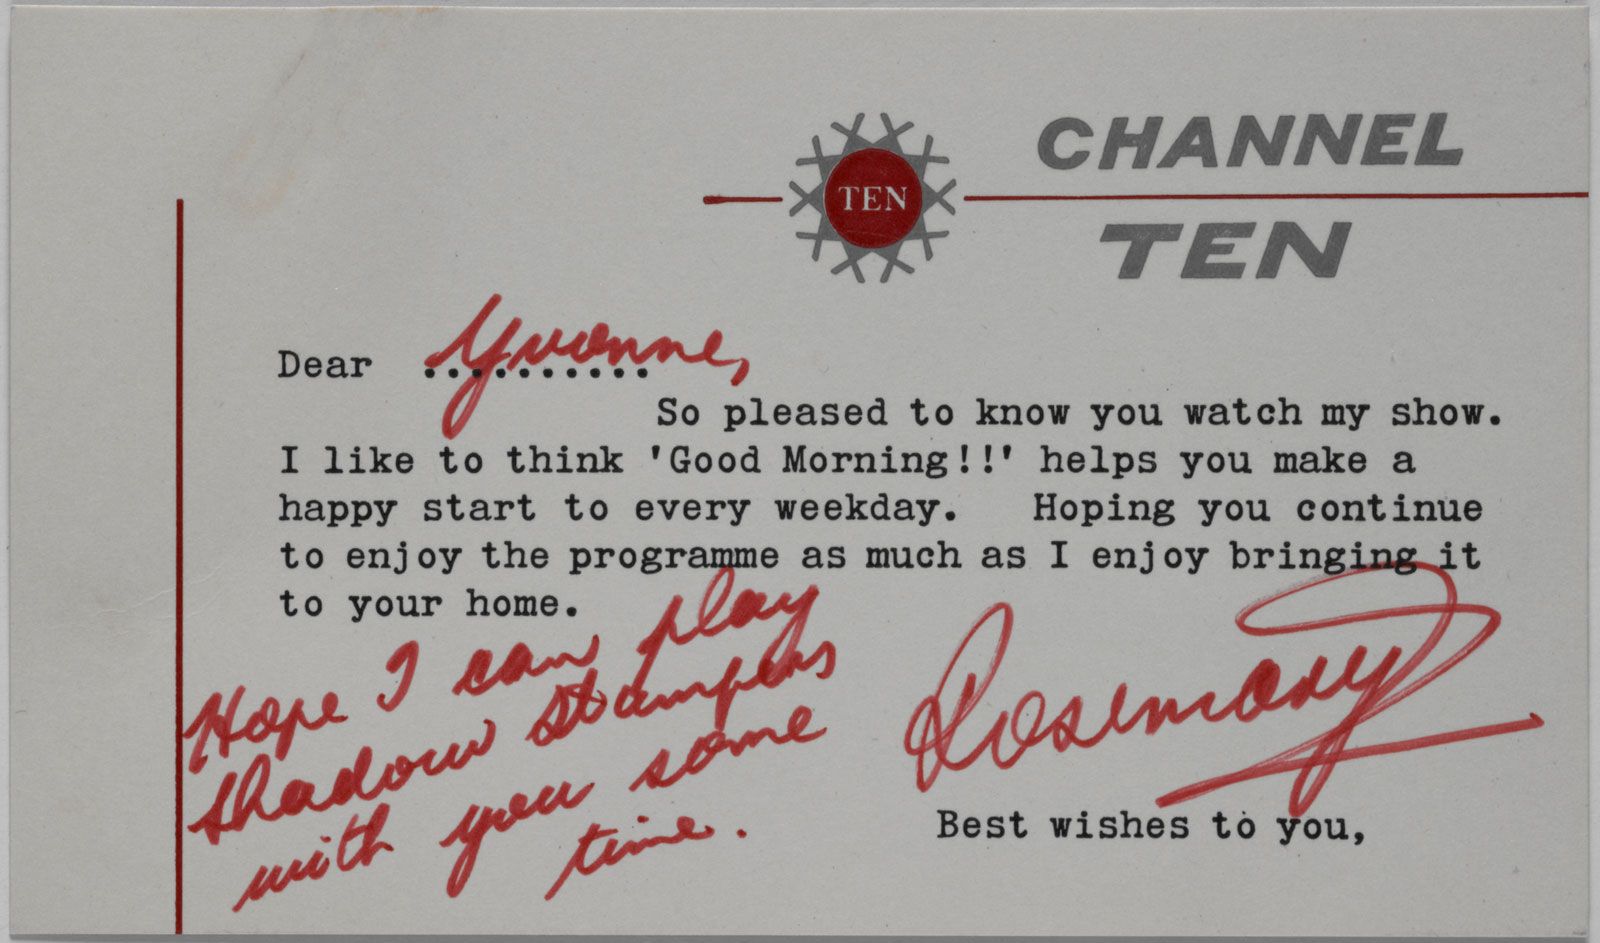 CHANNEL
TEN
TEN
Dear .......... Yvonne,
So pleased to know you watch my show.
I like to think 'Good Morning!!' helps you make a
happy start to every weekday. Hoping you continue
to enjoy the programme as much as I enjoy bringing it
to your home.
Hope I can play
shadow stumpers
with you some
time.
Rosemary
Best wishes to you,